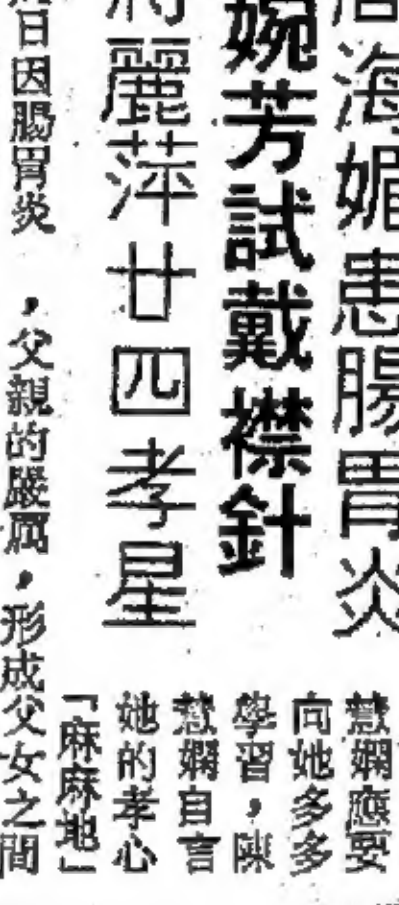 海媚患腸胃炎
婉芳試戴襟針
麗萍廿四孝星
慧嫻應要
向她多多
學習，陳
慧嫻自言
她的孝心
「麻麻地」
日因腸胃炎　，父親的嚴厲，形成父女之間